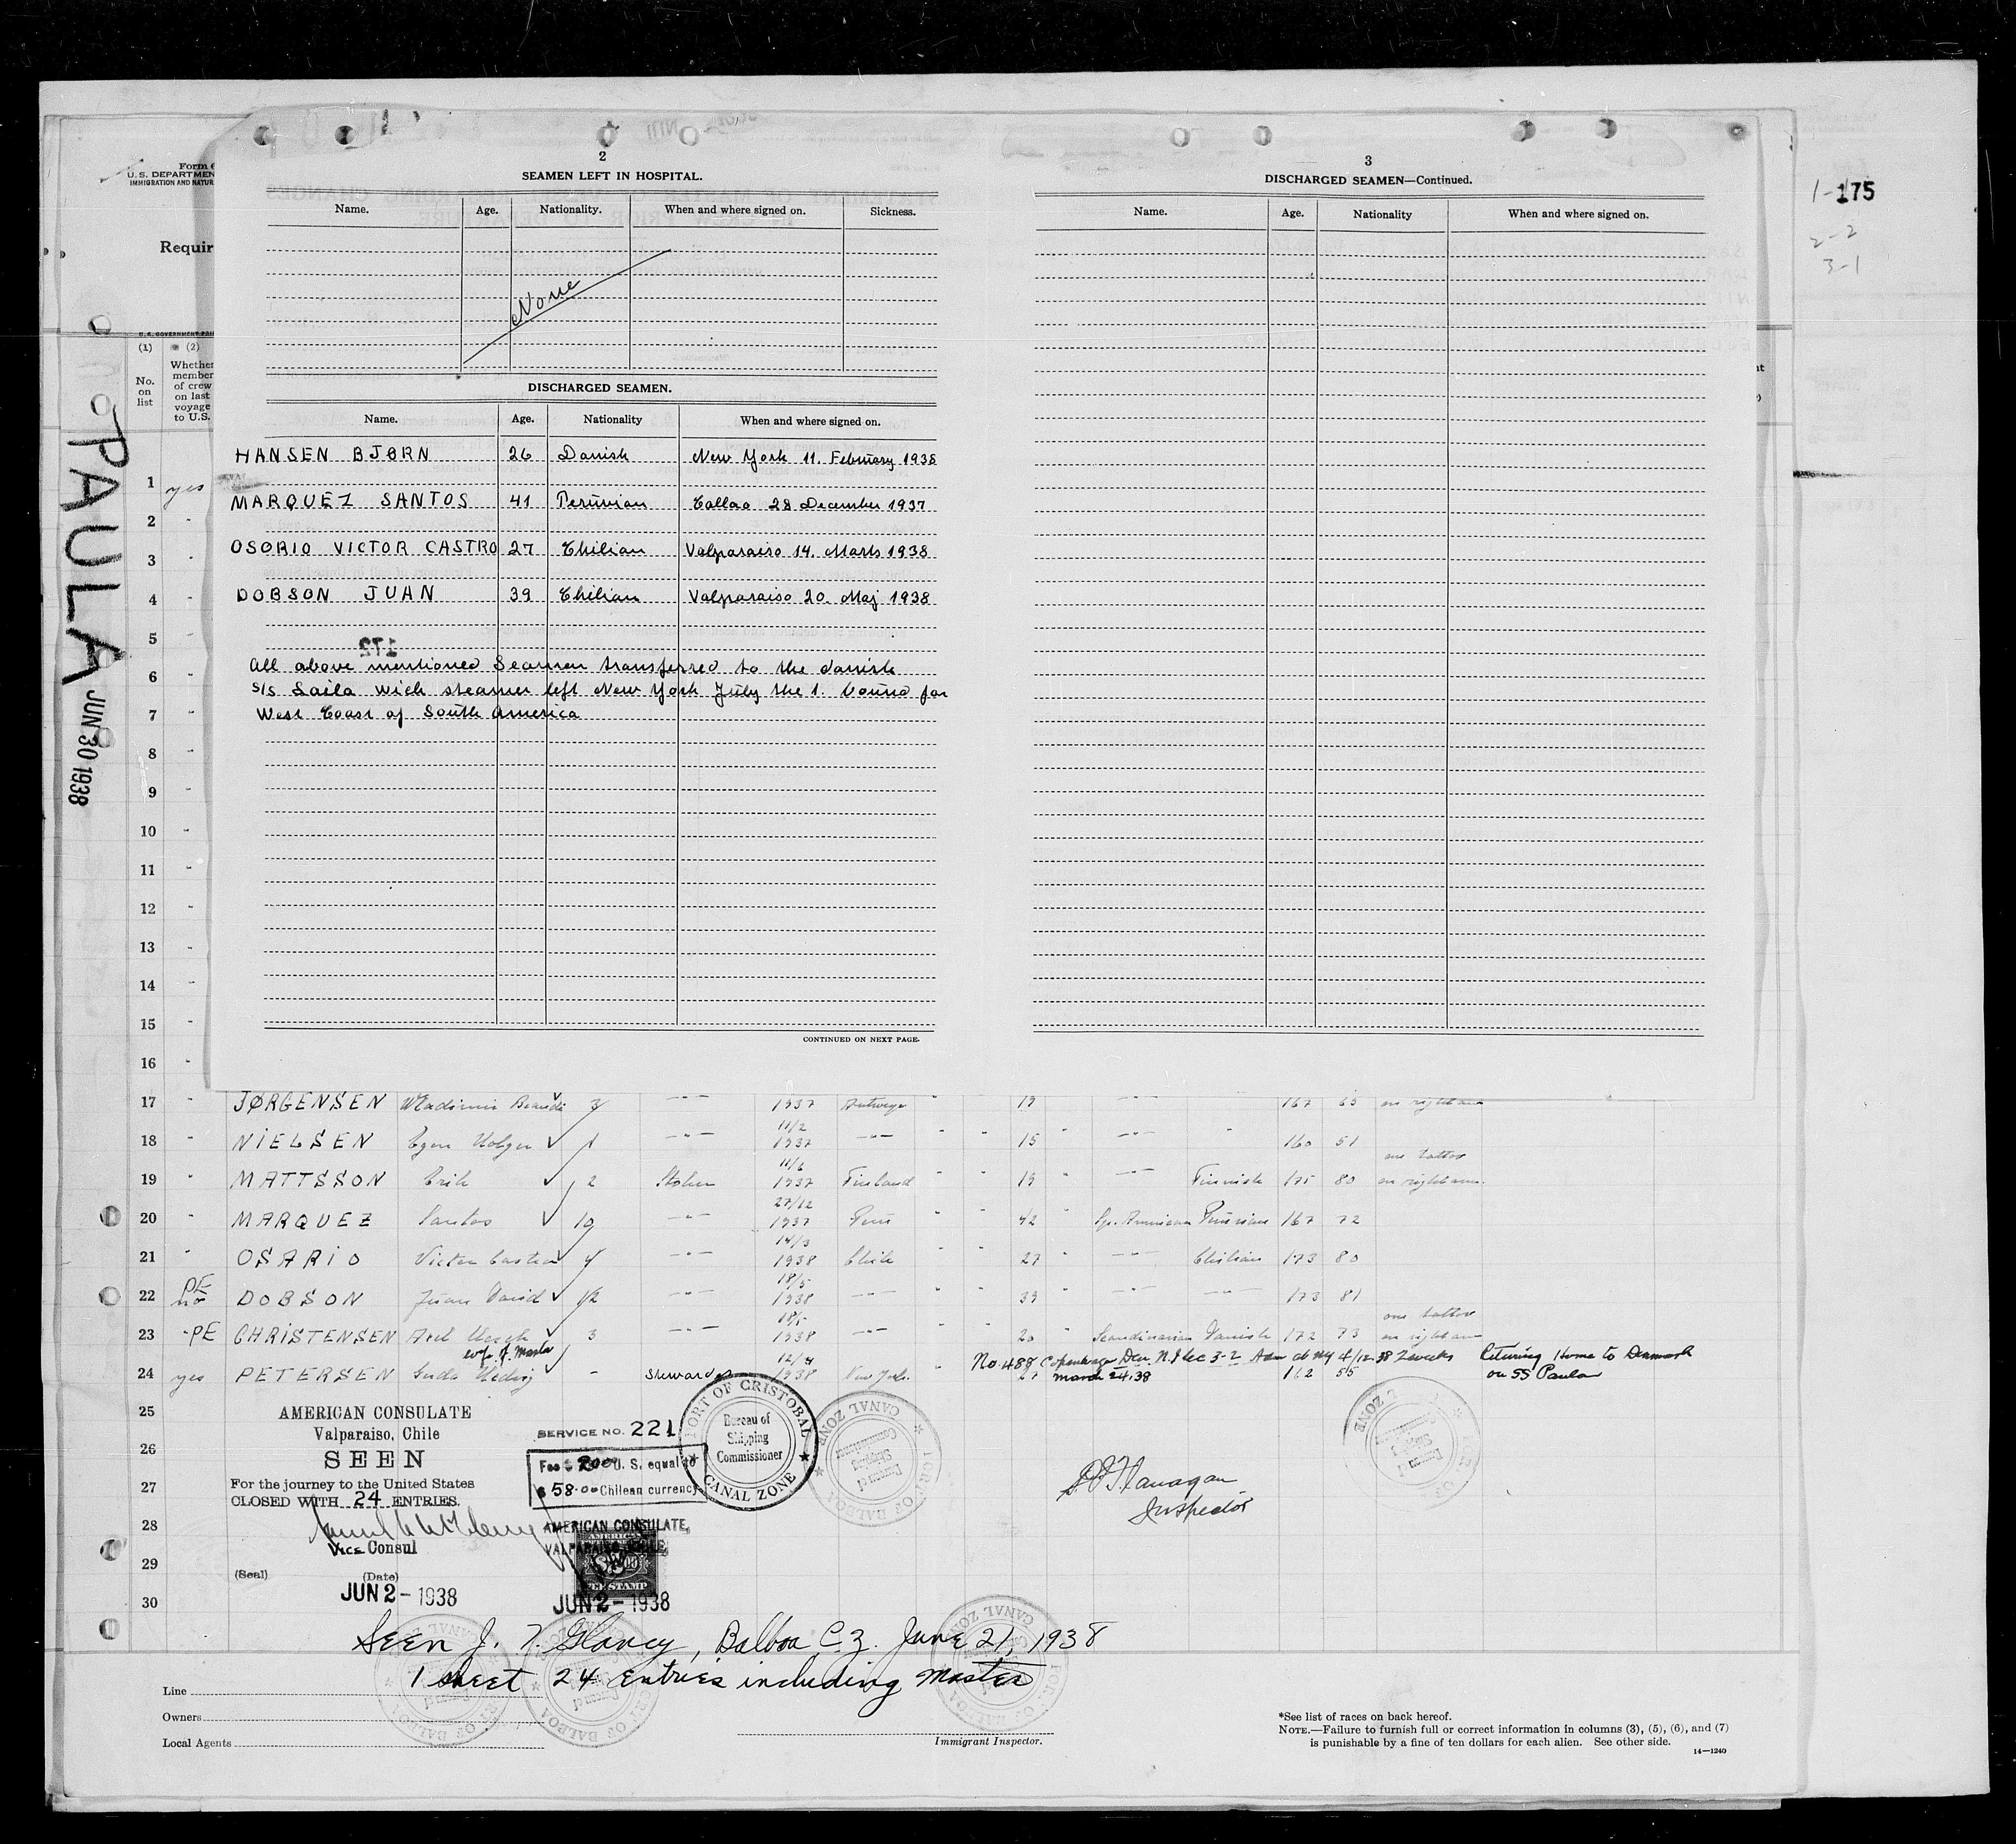 175
1-
2-2
3-1
Form
U.S. DEPARTMEN
IMMIGRATION AND NATUR
Requir
U. S. GOVERNMENT PRI
(1) (2)
No. on list
Whether member of crew on last voyage to U.S.
PAULA
JUN 30 1938
2
SEAMEN LEFT IN HOSPITAL.
Name. Age. Nationality. When and where signed on. Sickness.
None
DISCHARGED SEAMEN.
Name. Age. Nationality When and where signed on.
HANSEN BJØRN 26 Danish New York 11. February 1938
MARQUEZ SANTOS 41 Peruvian Callao 28 December 1937
OSORIO VICTOR CASTRO 27 Chilian Valparaiso 14. Marts 1938
DOBSON JUAN 39 Chilian Valparaiso 20. Maj 1938
172
All above mentioned Seamen transferred to the danish
s/s Laila wich steamer left New York July the 1. bound for
West Coast of South America
CONTINUED ON NEXT PAGE.
3
DISCHARGED SEAMEN—Continued.
Name. Age. Nationality When and where signed on.
1 yes
2 "
3 "
4 "
5 "
6 "
7 "
8 "
9 "
10 "
11 "
12 "
13 "
14 "
15 "
16 "
17 " JØRGENSEN 3 1937 19 167 65 on right arm
18 " NIELSEN Egon Holger 1 11/2 1937 15 160 51
19 " MATTSSON Erik 2 Stoker 11/6 1937 Finland 19 Finnish 175 80 one tattoo on right arm
20 " MARQUEZ Santos 10 27/12 1937 Peru 42 Peruvian 167 72
21 " OSARIO Victor Castro 4 14/3 1938 Chile 27 Chilian 173 80
22 PE no DOBSON Juan David 1/2 18/5 1938 39 173 81
23 " PE CHRISTENSEN 3 18/5 1938 20 Scandinavian Danish 172 73 one tattoo on right arm
wife of Master
24 yes PETERSEN - Stewardess 12/4 1938 New York No. 488 Copenhagen Den. 3-2 4/12.38 2 weeks Returning Home to Denmark
march 24.38 162 55 on SS Paula
25
26
27
28
29
30
AMERICAN CONSULATE
Valparaiso, Chile
SEEN
For the journey to the United States
CLOSED WITH 24 ENTRIES.
Vice Consul
(Seal) (Date)
JUN 2 - 1938
SERVICE NO. 221
Fee $ 2.00 U. S. equal to
$ 58.00 Chilean currency
AMERICAN CONSULATE,
VALPARAISO, CHILE,
FEE STAMP
JUN 2 - 1938
PORT OF CRISTOBAL
Bureau of Shipping Commissioner
CANAL ZONE
PORT OF BALBOA
CANAL ZONE
Flanagan
Inspector
Seen J. T. Glancy, Balboa C.Z. June 21, 1938
1 sheet 24 entries including Master
Line
Owners
Local Agents
Immigrant Inspector.
*See list of races on back hereof.
NOTE.—Failure to furnish full or correct information in columns (3), (5), (6), and (7)
is punishable by a fine of ten dollars for each alien. See other side.
14—1240